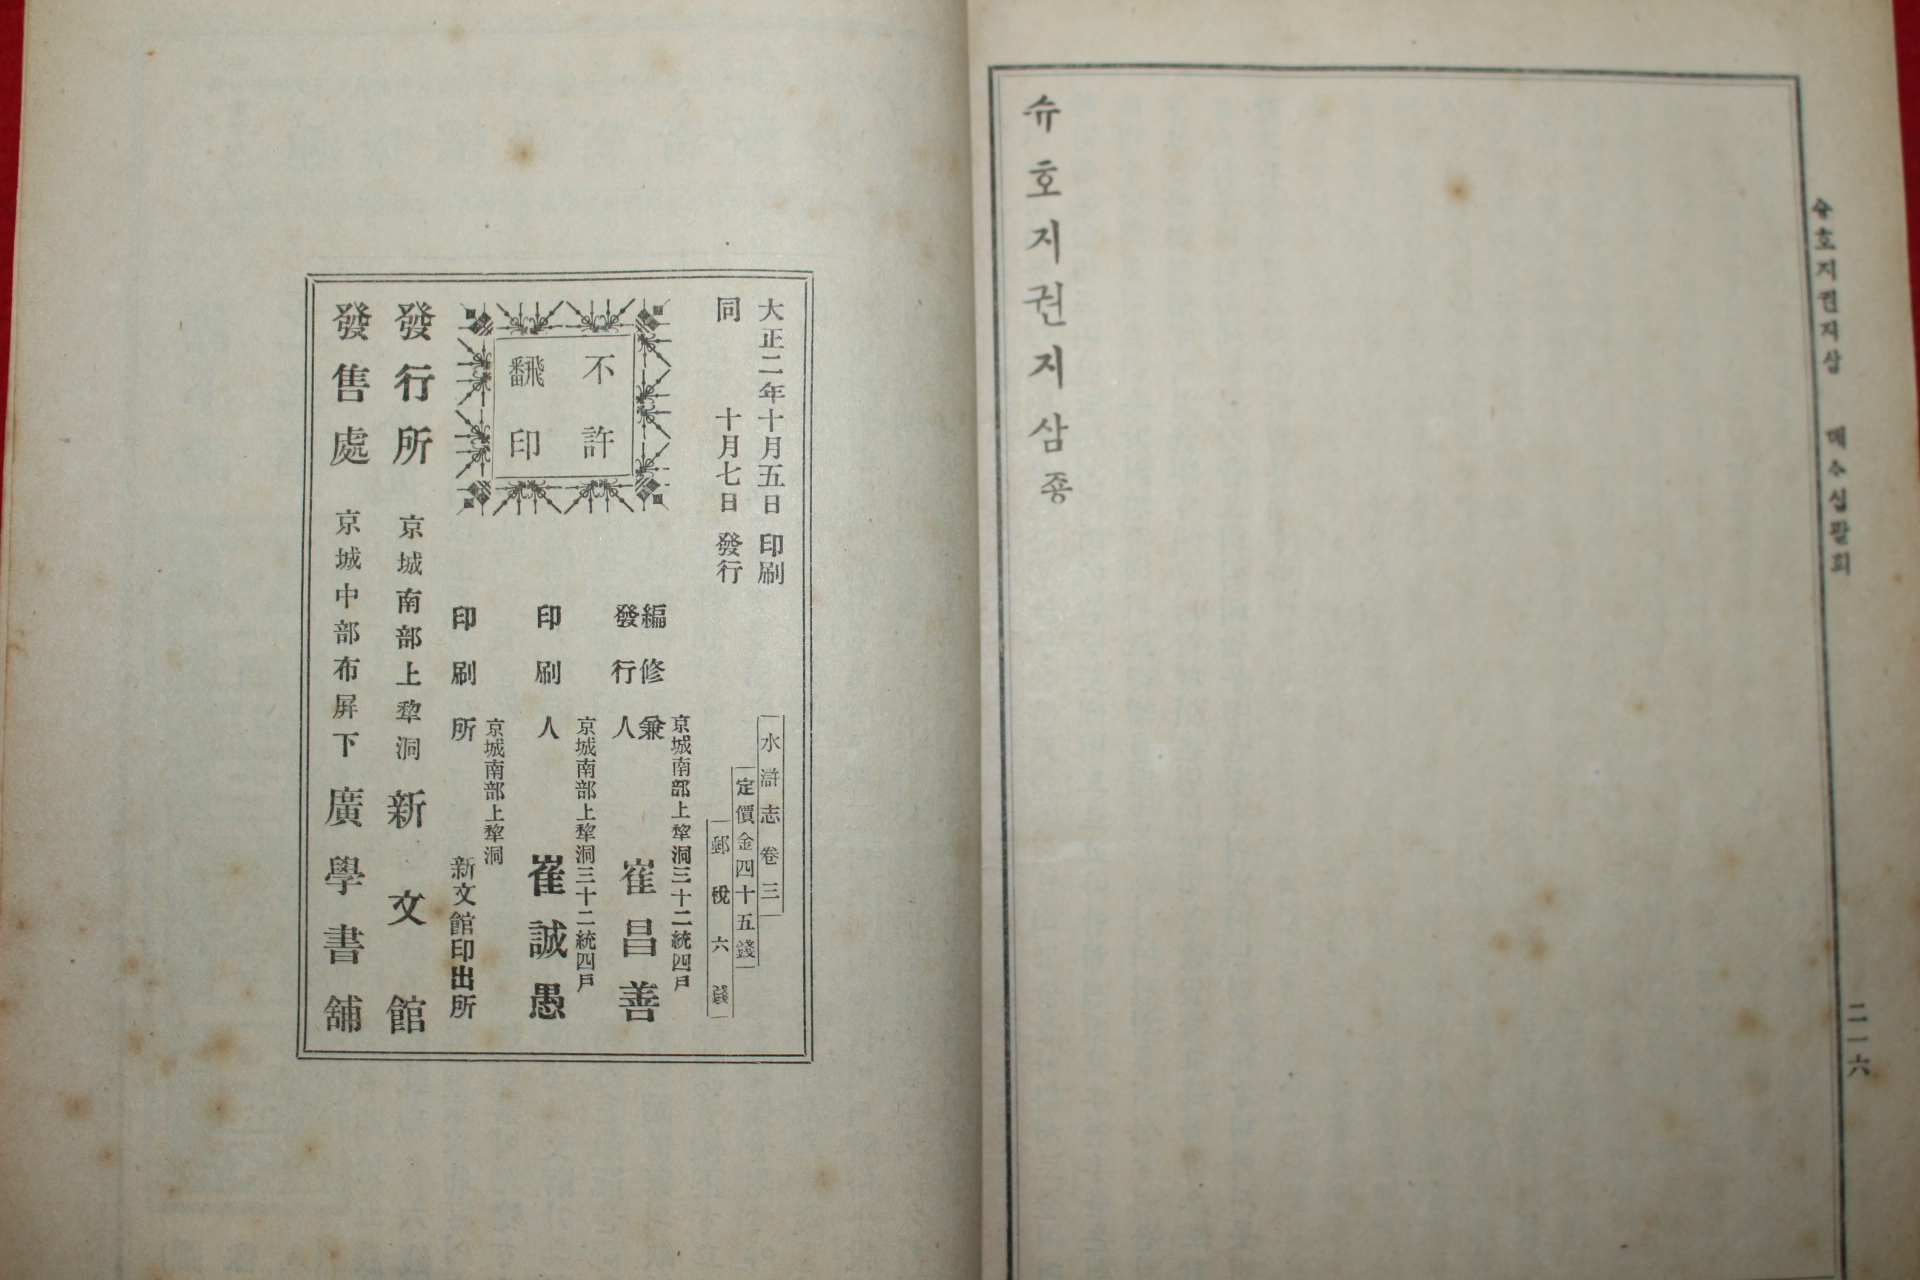 슈호지권지삼 뎨수십팔회
二一六
슈호지권지삼종
大正二年十月五日印刷
同 十月七日發行
水滸志卷三
定價金四十五錢
郵稅六錢
不許
飜印
京城南部上犂洞三十二統四戶
編修兼
發行人 崔昌善
京城南部上犂洞三十二統四戶
印刷人 崔誠愚
京城南部上犂洞
印刷所 新文館印出所
發行所 京城南部上犂洞 新文館
發售處 京城中部布屛下 廣學書舖